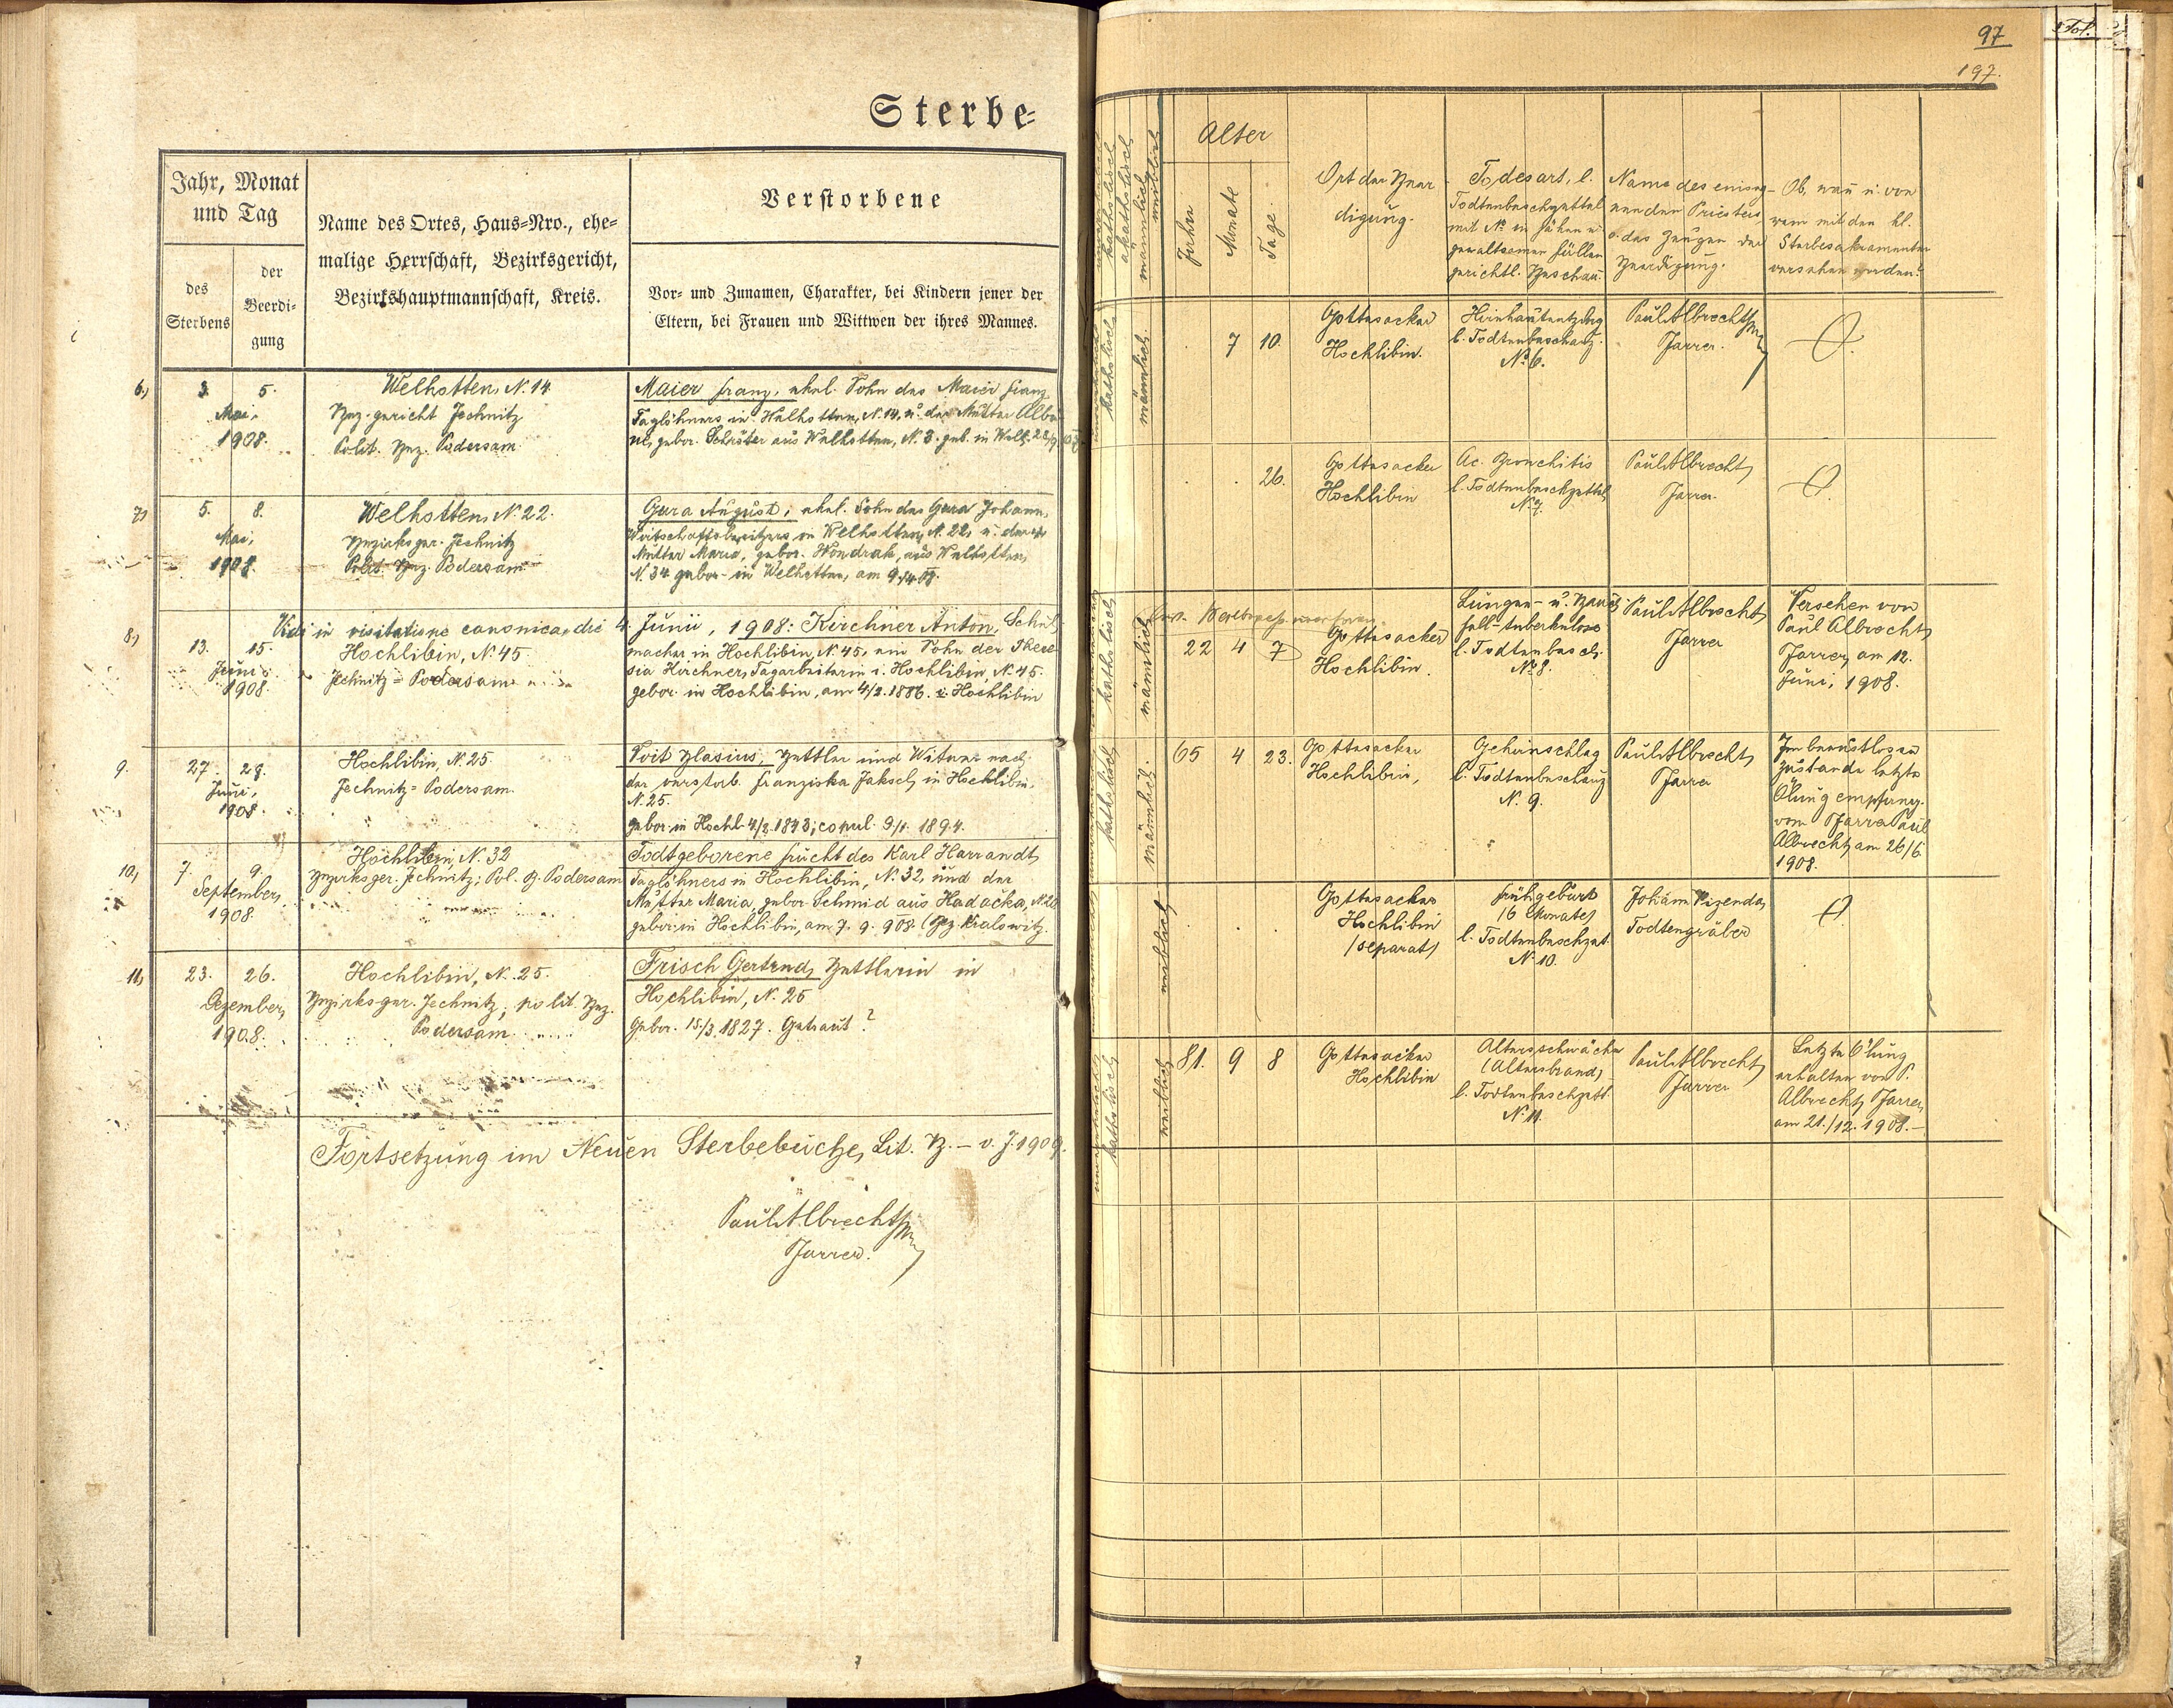 Sterbe=
Jahr, Monat
und Tag
des
Sterbens
der
Beerdi-
gung
Name des Ortes, Haus-Nro., ehe-
malige Herrschaft, Bezirksgericht,
Bezirkshauptmannschaft, Kreis.
Verstorbene
Vor- und Zunamen, Charakter, bei Kindern jener der
Eltern, bei Frauen und Wittwen der ihres Mannes.
6.)
3. 5.
Mai,
1908.
Welhotten, N. 14
Bez.gericht Jechnitz
Polit. Bez. Podersam
Maier Franz, ehel. Sohn des Maier Franz
Taglöhners in Welhotten, N. 14, u. der Mutter
gebor. Schröter aus Welhotten, N. 3. geb. in Welh.
7)
5. 8.
Mai,
1908.
Welhotten, N. 22.
Bezirksger. Jechnitz
Polit. Bez. Podersam
Gura August, ehel. Sohn des Gura Johann,
Wirtschaftsbesitzers in Welhotten, N. 22, u. der
Mutter Maria, gebor. Wondrak, aus Welhotten,
N. 34 gebor. in Welhotten, am 9./4. 08.
Vidi in visitatione canonica, die 4. Junii, 1908:
8.)
13. 15.
Juni
1908.
Hochlibin, N. 45
Jechnitz = Podersam
Kirchner Anton, Schuh-
macher in Hochlibin, N. 45, ein Sohn der There-
sia Kirchner, Tagarbeiterin i. Hochlibin, N. 45.
gebor. in Hochlibin, am 4/2. 1886. i. Hochlibin
9.
27. 29.
Juni,
1908.
Hochlibin, N. 25.
Jechnitz = Podersam.
Voit Blasius, Bettler und Witwer nach
der verstorb. Franziska Jaksch, in Hochlibin,
N. 25.
gebor. in Hochl. 4/2. 1843; copul. 9/1. 1894.
10.)
7. 9.
September,
1908
Hochlibin, N. 32
Bezirksger. Jechnitz; Pol. B. Podersam
Todtgeborene Frucht des Karl Harrandt,
Taglöhners in Hochlibin, N. 32, und der
Mutter Maria, gebor. Schmid aus Hadacka, N. 20
gebor. in Hochlibin, am 7. 9. 908. (Bez. Kralowitz.
11.)
23. 26.
Dezember,
1908.
Hochlibin, N. 25.
Bezirksger. Jechnitz; polit. Bez.
Podersam
Frisch Gertrud, Bettlerin in
Hochlibin, N. 25
Gebor. 15./3. 1827. Getraut?
Fortsetzung im Neuen Sterbebuche, Lit. B. – v. J. 1909.
Paul Albrecht
Pfarrer.
97
197.
Fol.
katholisch
akatholisch
männlich
weiblich
Alter
Jahre
Monate
Tage.
Ort der Beer
digung.
Todesart, l.
Todtenbeschzettel
mit N. in jähen u.
gewaltsamen Fällen
gerichtl. Beschau.
Name des einseg-
nenden Priesters
o. des Zeugen der
Beerdigung.
Ob, wann u. von
wem mit den hl.
Sterbesakramenten
versehen worden?
katholisch
männlich.
. 7 10.
Gottesacker
Hochlibin.
Hirnhautentzdg
l. Todtenbeschauz.
N. 6.
Paul Albrecht
Pfarrer.
. . 26.
Gottesacker
Hochlibin
Ac. Bronchitis
l. Todtenbeschzettel,
N. 7.
Paul Albrecht,
Pfarrer.
katholisch
männlich
22 4 7
Gottesacker
Hochlibin
Lungen- u. Bauch-
fell-tuberkulose
l. Todtenbesch.
N. 8.
Paul Albrecht,
Pfarrer
Versehen von
Paul Albrecht,
Pfarrer, am 12.
Juni, 1908.
katholisch
männlich.
65 4 23.
Gottesacker
Hochlibin,
Gehirnschlag
l. Todtenbeschauz
N. 9.
Paul Albrecht,
Pfarrer
Im bewustlosen
Zustande letzte
Ölung empfang.
vom Pfarrer Paul
Albrecht, am 26/6.
1908.
weiblich
. . .
Gottesacker
Hochlibin
/separat/
Frühgeburt
/6 Monate/
l. Todtenbeschzet.
N. 10.
Johann Vizenda,
Todtengräber
katholisch
weiblich
81. 9 8
Gottesacker
Hochlibin
Altersschwäche
(Altersbrand)
l. Todtenbeschzettl.
N. 11.
Paul Albrecht,
Pfarrer
Letzte Ölung
erhalten von P.
Albrecht, Pfarrer,
am 21./12. 1908.–